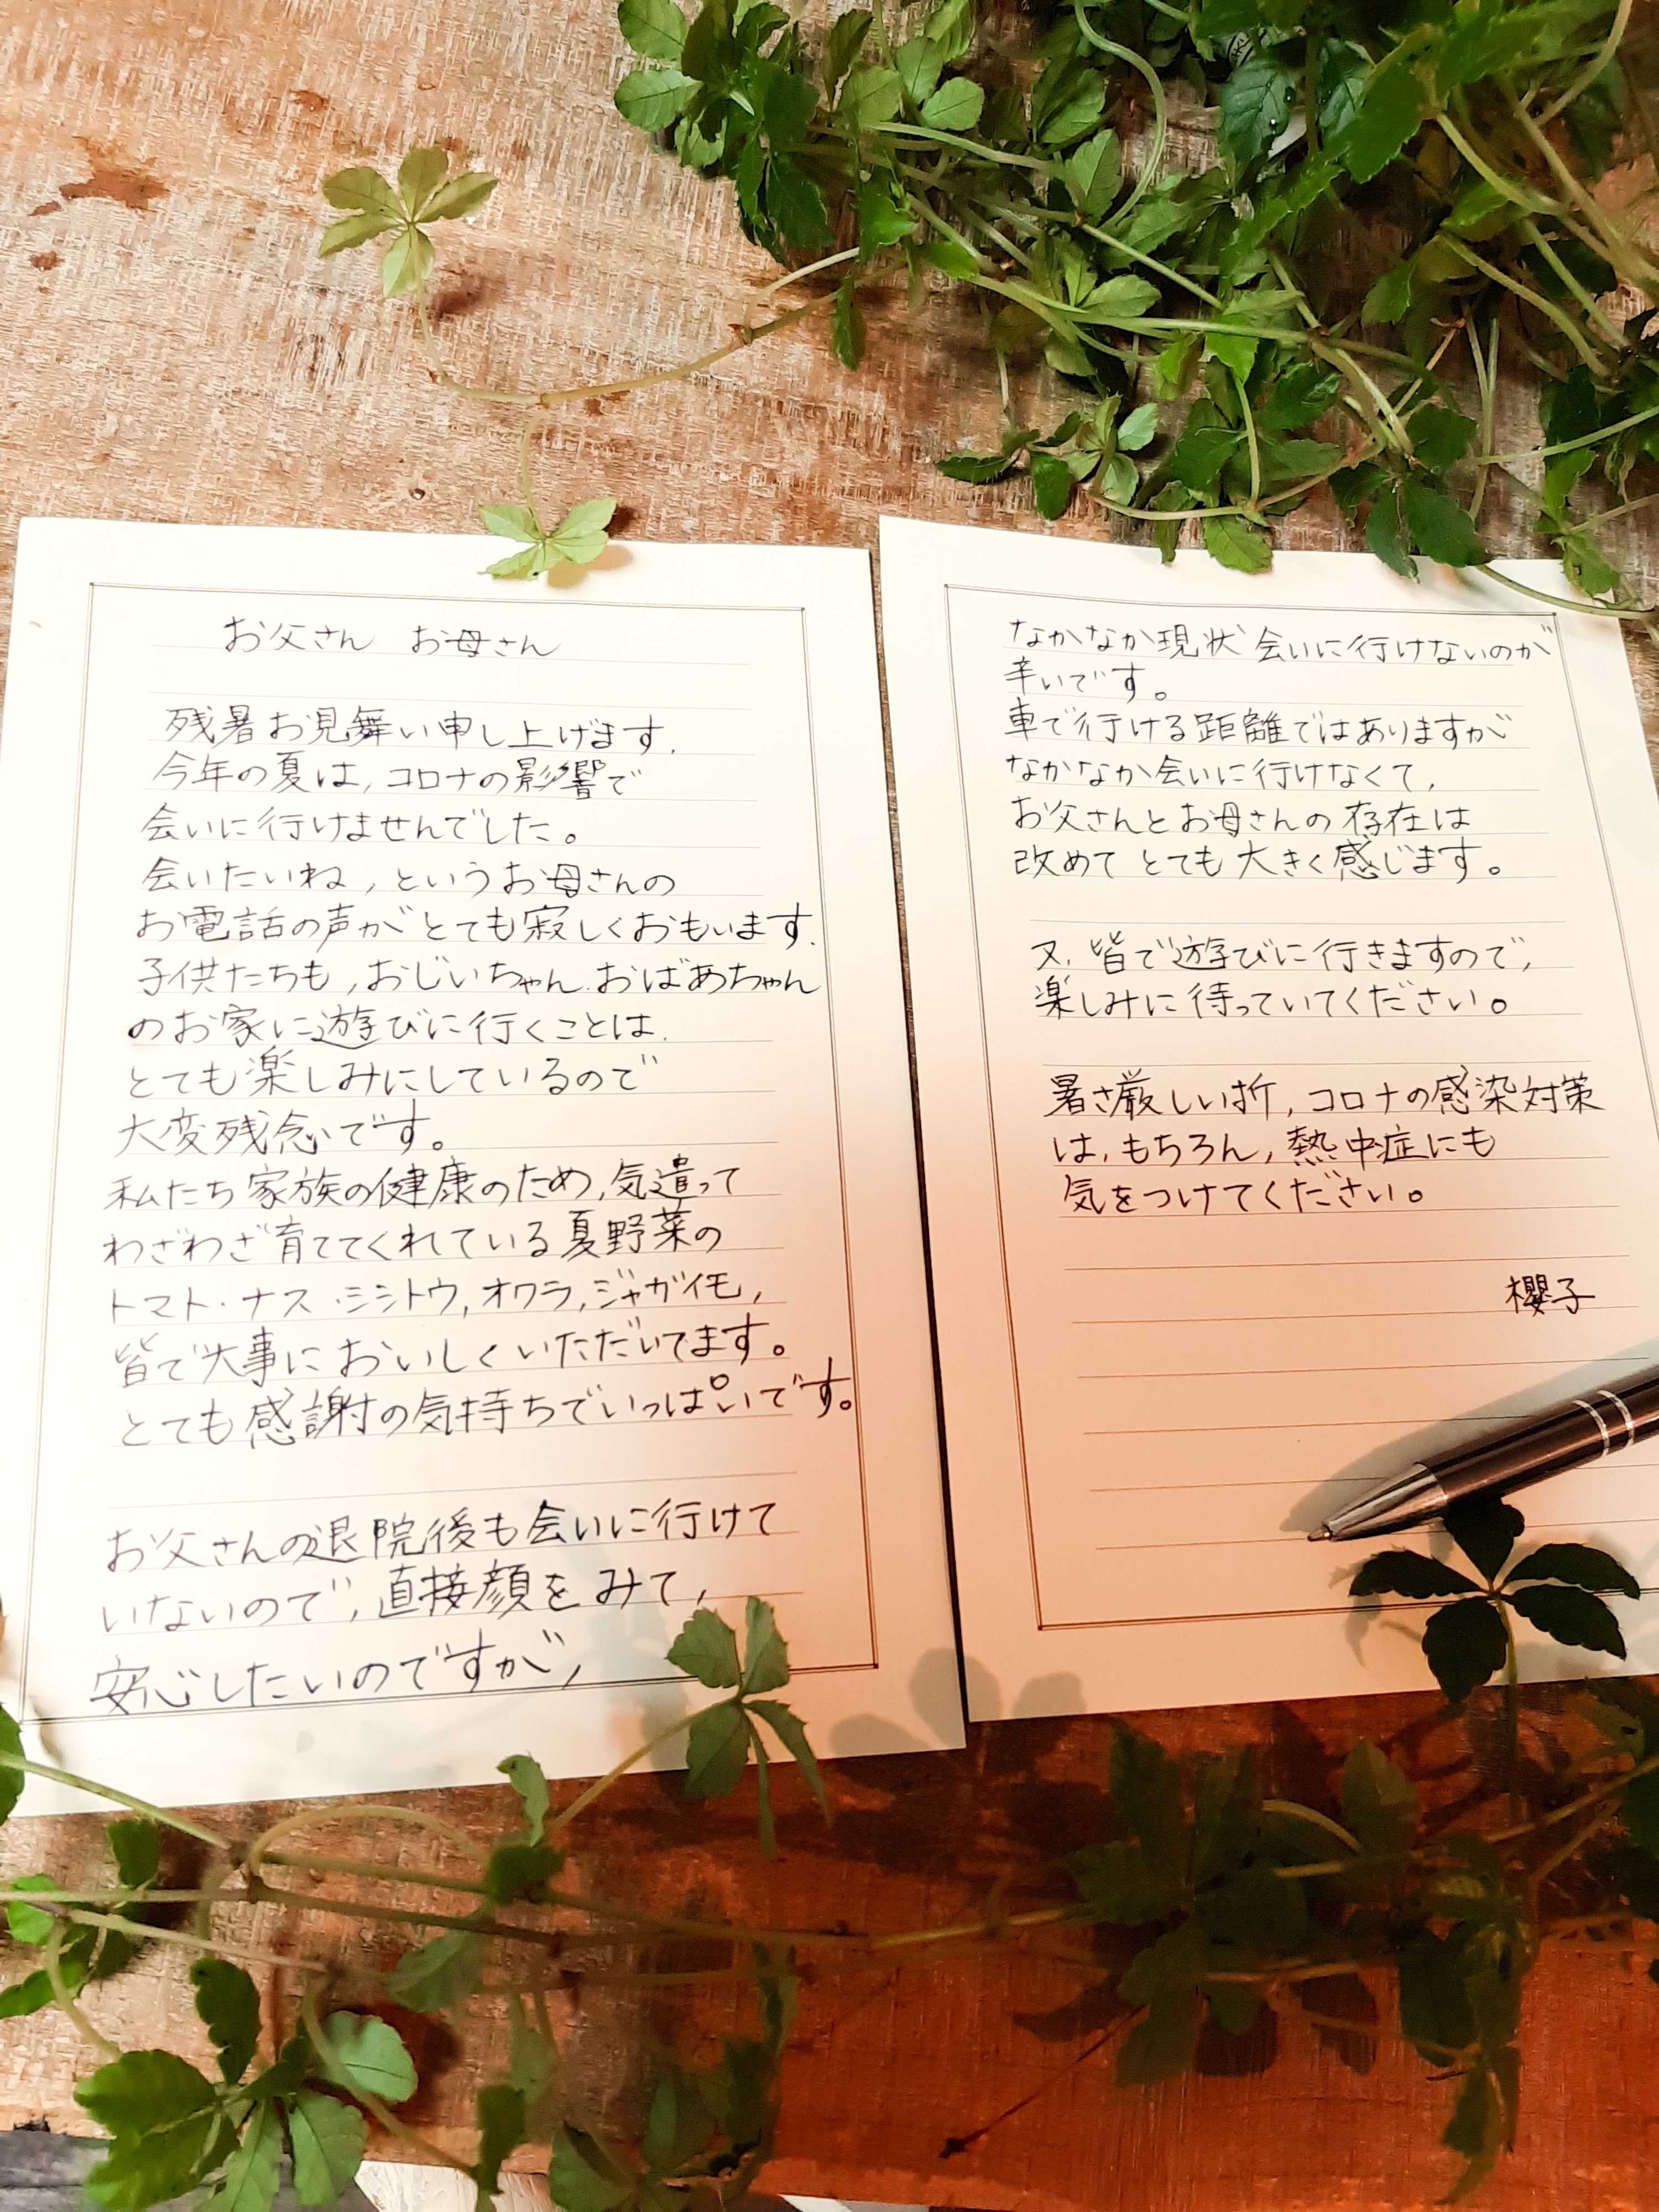 お父さん　お母さん
残暑お見舞い申し上げます.
今年の夏は,コロナの影響で
会いに行けませんでした。
会いたいね,というお母さんの
お電話の声がとても寂しくおもいます.
子供たちも,おじいちゃん.おばあちゃん
のお家に遊びに行くことは.
とても楽しみにしているので
大変残念です。
私たち家族の健康のため,気遣って
わざわざ育ててくれている夏野菜の
トマト・ナス・シシトウ,オクラ,ジャガイモ,
皆で大事においしくいただいてます。
とても感謝の気持ちでいっぱいです。
お父さんの退院後も会いに行けて
いないので,直接顔をみて,
安心したいのですが,
なかなか現状会いに行けないのが
辛いです。
車で行ける距離ではありますが
なかなか会いに行けなくて,
お父さんとお母さんの存在は
改めてとても大きく感じます。
又,皆で遊びに行きますので,
楽しみに待っていてください。
暑さ厳しい折,コロナの感染対策
は,もちろん,熱中症にも
気をつけてください。
櫻子